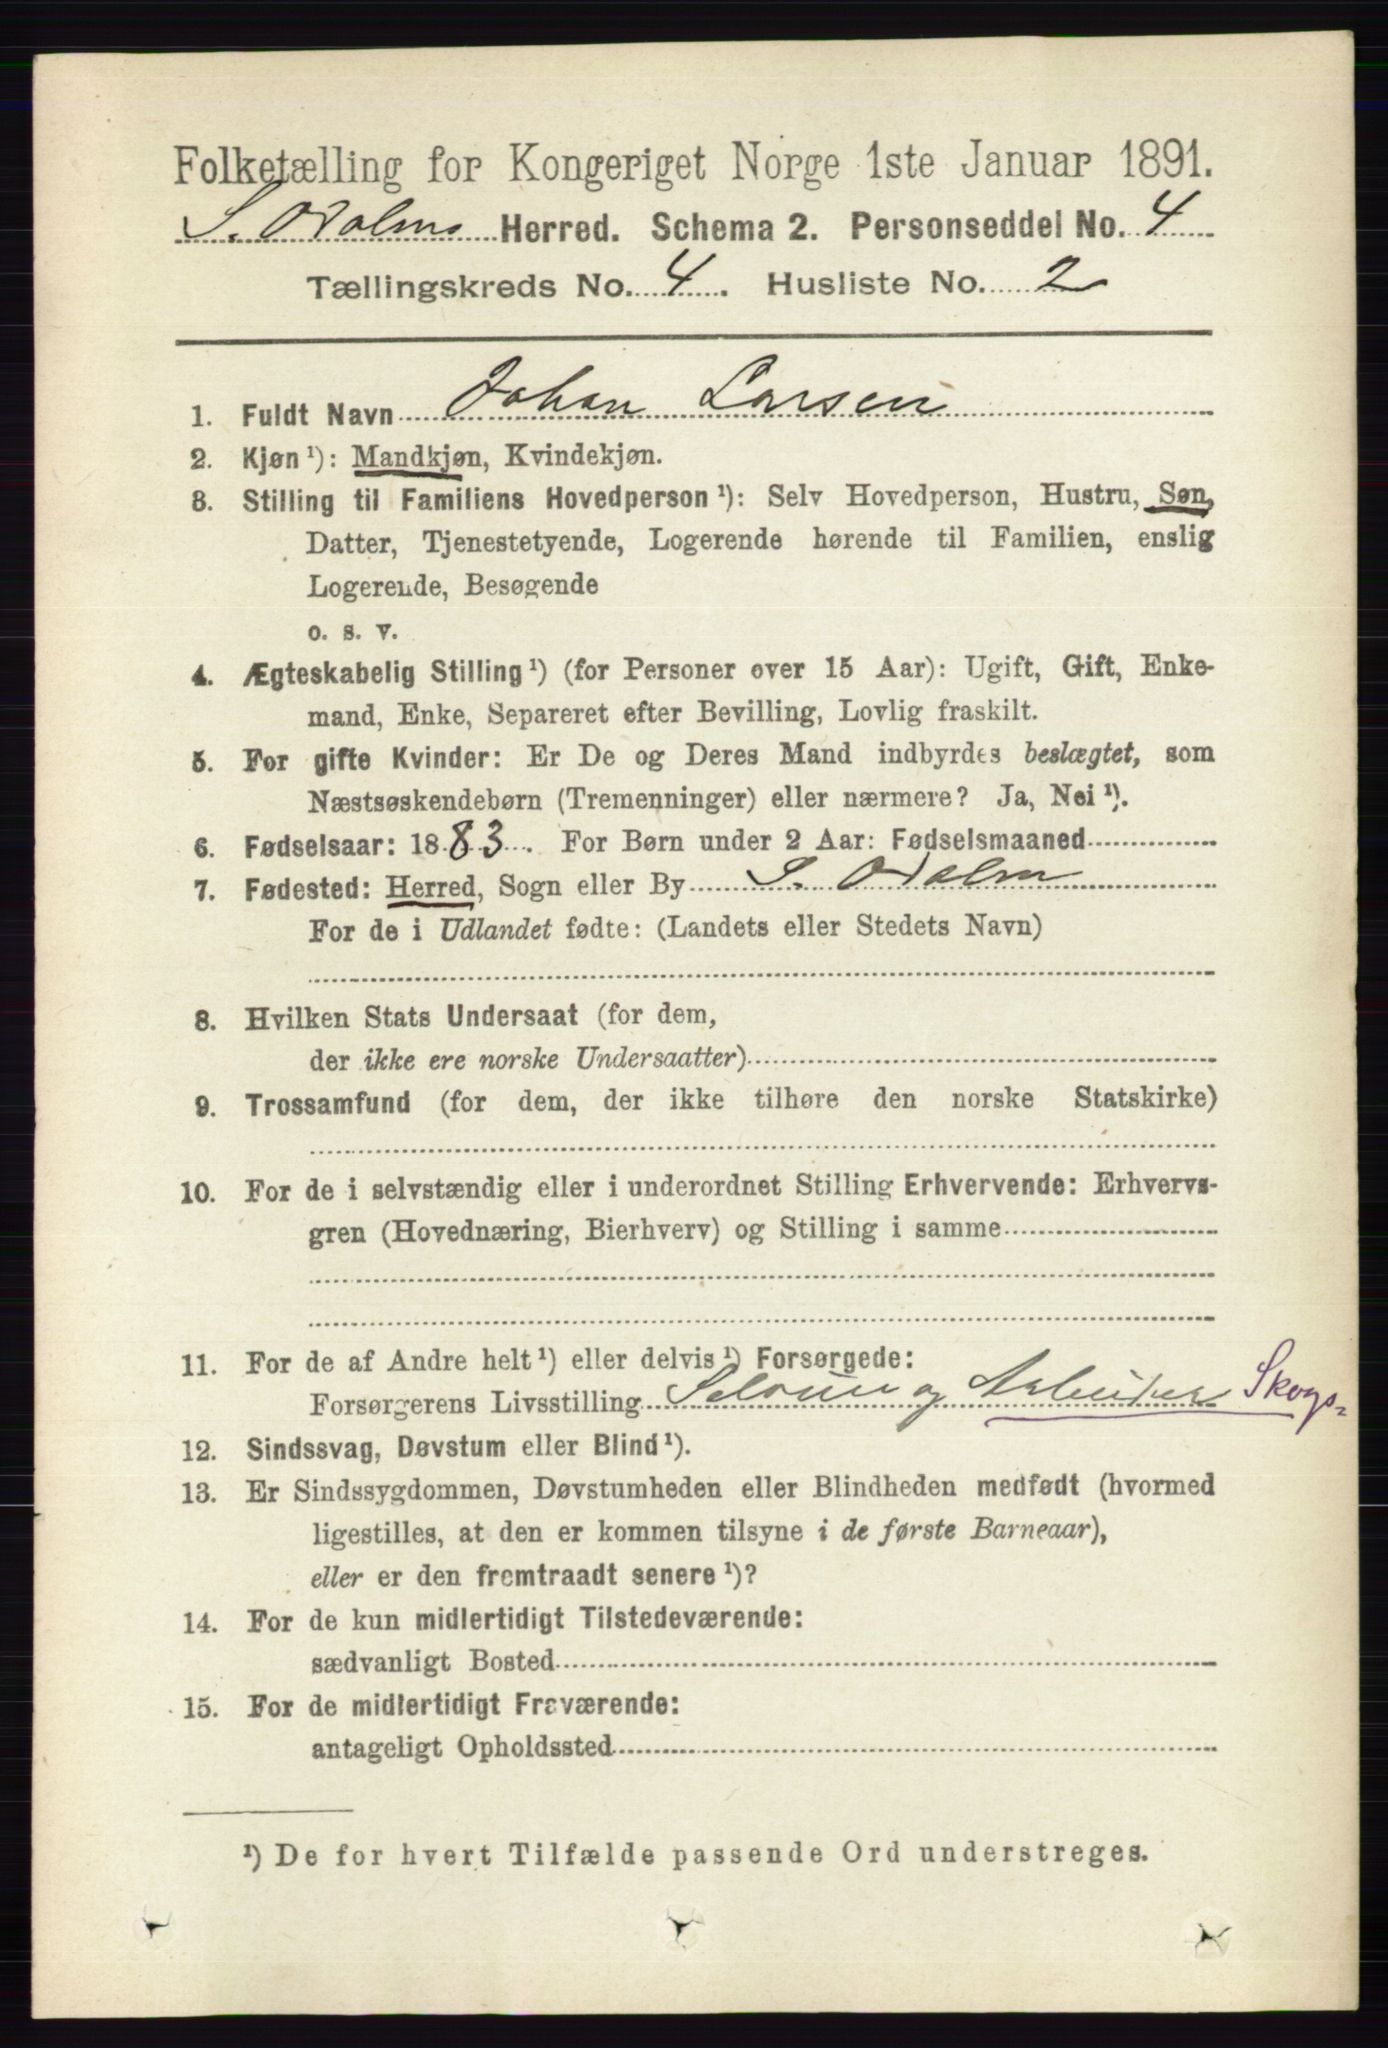 Folketælling for Kongeriget Norge 1ste Januar 1891.
S. Odalms Herred. Schema 2. Personseddel No. 4
Tællingskreds No. 4. Husliste No. 2
1. Fuldt Navn Johan Larsen
2. Kjøn ¹): Mandkjøn, Kvindekjøn.
3. Stilling til Familiens Hovedperson ¹): Selv Hovedperson, Hustru, Søn,
Datter, Tjenestetyende, Logerende hørende til Familien, enslig
Logerende, Besøgende
o. s. v.
4. Ægteskabelig Stilling ¹) (for Personer over 15 Aar): Ugift, Gift, Enke-
mand, Enke, Separeret efter Bevilling, Lovlig fraskilt.
5. For gifte Kvinder: Er De og Deres Mand indbyrdes beslægtet, som
Næstsøskendebørn (Tremenninger) eller nærmere? Ja, Nei ¹).
6. Fødselsaar: 1883. For Børn under 2 Aar: Fødselsmaaned
7. Fødested: Herred, Sogn eller By S. Odalm
For de i Udlandet fødte: (Landets eller Stedets Navn)
8. Hvilken Stats Undersaat (for dem,
der ikke ere norske Undersaatter)
9. Trossamfund (for dem, der ikke tilhøre den norske Statskirke)
10. For de i selvstændig eller i underordnet Stilling Erhvervende: Erhvervs-
gren (Hovednæring, Bierhverv) og Stilling i samme
11. For de af Andre helt ¹) eller delvis ¹) Forsørgede:
Forsørgerens Livsstilling Seloeier og Arbeider Skogs=
12. Sindssvag, Døvstum eller Blind ¹).
13. Er Sindssygdommen, Døvstumheden eller Blindheden medfødt (hvormed
ligestilles, at den er kommen tilsyne i de første Barneaar),
eller er den fremtraadt senere ¹)?
14. For de kun midlertidigt Tilstedeværende:
sædvanligt Bosted
15. For de midlertidigt Fraværende:
antageligt Opholdssted
¹) De for hvert Tilfælde passende Ord understreges.